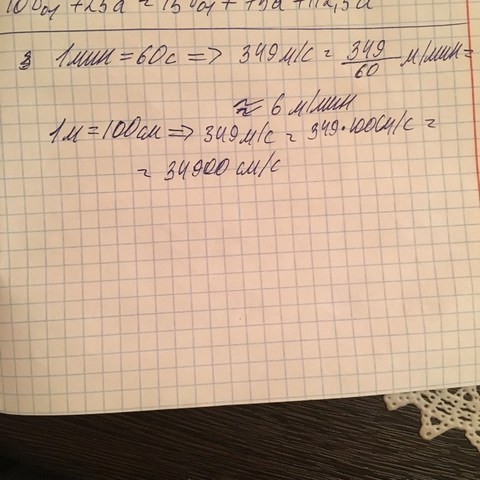 100y + 25a = 150y + 75a + 112,5a
3 1 мин = 60с => 349 м/с = 349/60 м/мин =
≈ 6 м/мин
1м = 100см => 349 м/с = 349·100см/с =
= 34900 см/с